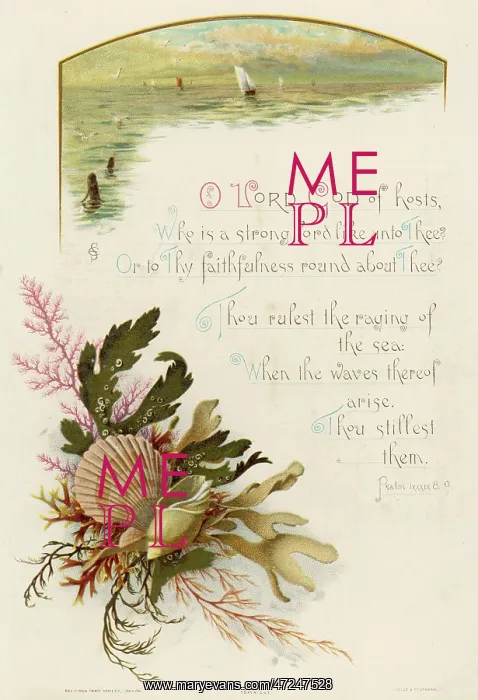 O LORD God of hosts,
Who is a strong Lord like unto Thee?
& Or to Thy faithfulness round about Thee?
Thou rulest the raging of
the sea:
When the waves thereof
arise.
Thou stillest
them.
Psalm lxxxix 8. 9
ME
PL
ME
PL
COPYRIGHT
www.maryevans.com/47247528